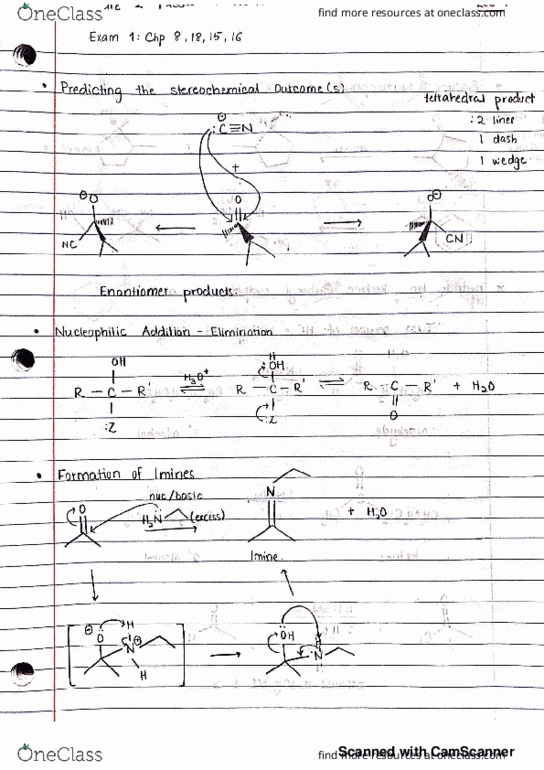 OneClass
find more resources at oneclass.com
Exam 1: Chp 8, 18, 15, 16
• Predicting the stereochemical outcome(s)
tetrahedral product
: 2 lines
1 dash
1 wedge
⊖
:C≡N
+
⊖O
O
O⊖
NC
CN
Enantiomer products
• Nucleophilic Addition - Elimination
OH
R - C - R'
:Z
H3O+
H
OH
R - C - R'
:Z
R - C - R' + H2O
O
• Formation of Imines
nuc/basic
O
H2N
(excess)
N
+ H2O
Imine
⊖
O
H
N
⊕
H
OH
N
H
OneClass
find more resources at oneclass.com
Scanned with CamScanner